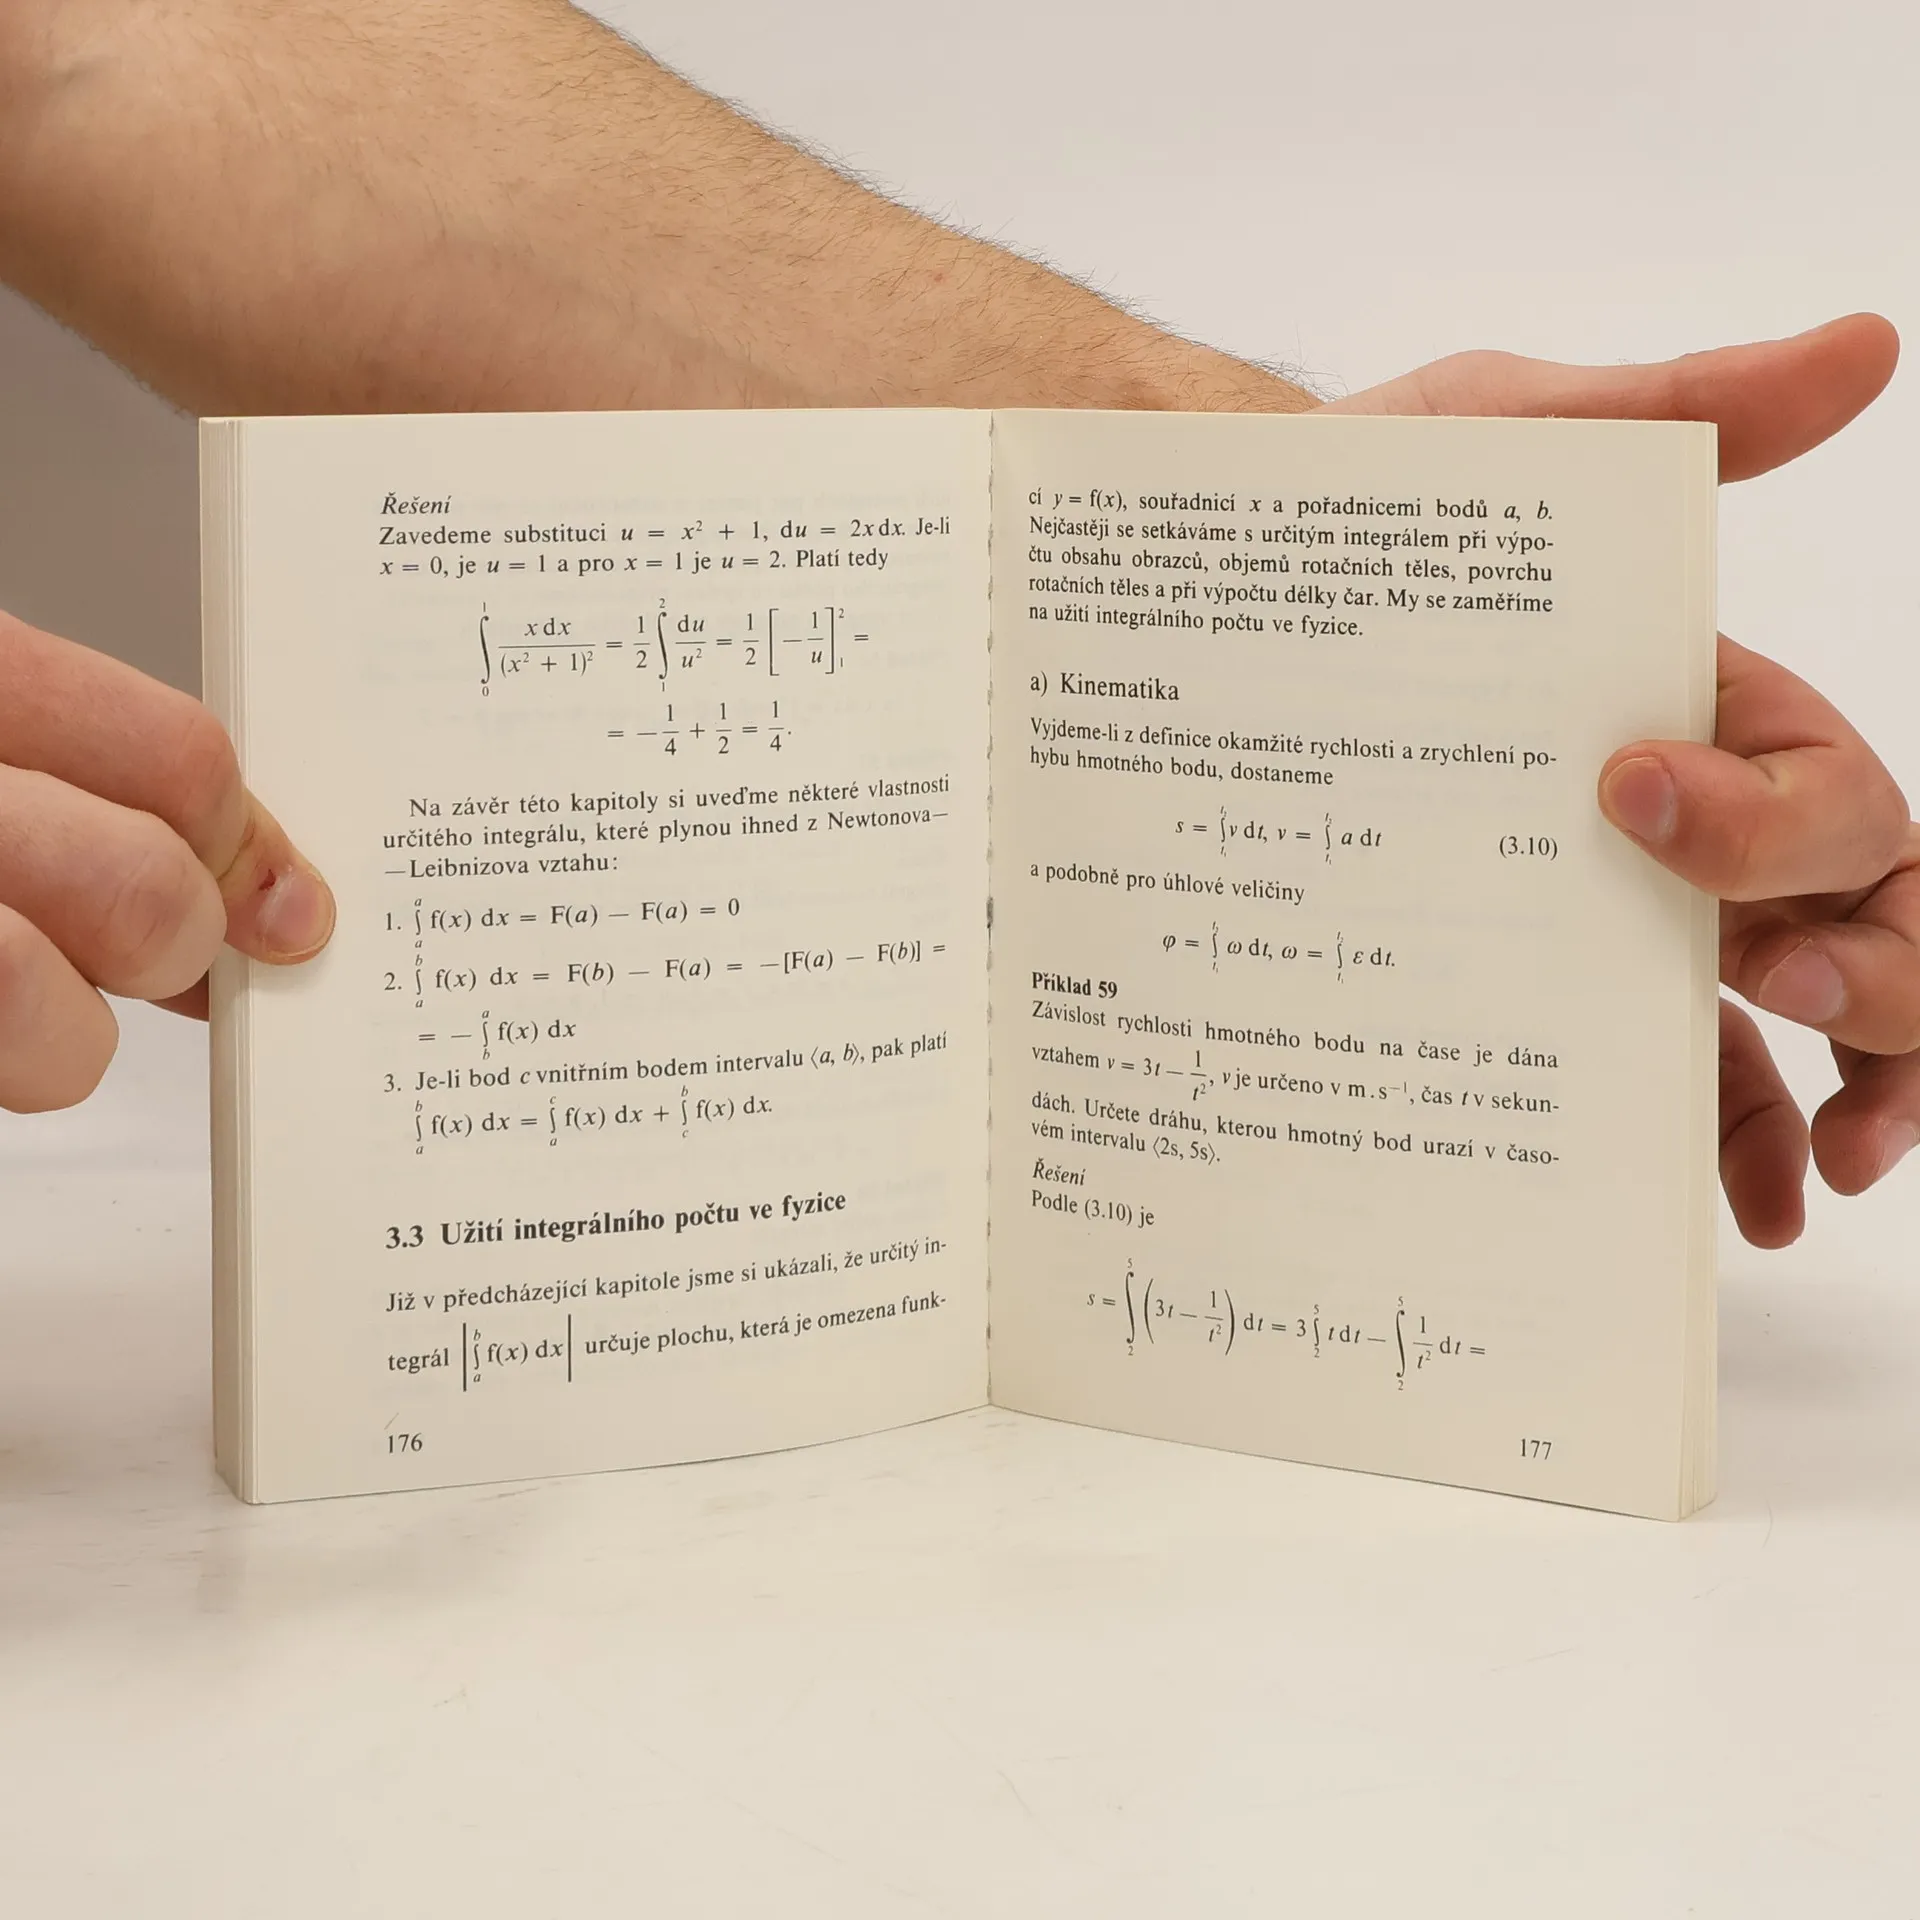 Řešení
Zavedeme substituci u = x² + 1, du = 2x dx. Je-li
x = 0, je u = 1 a pro x = 1 je u = 2. Platí tedy
∫₀¹ x dx / (x² + 1)² = 1/2 ∫₁² du/u² = 1/2 [− 1/u]₁² =
= − 1/4 + 1/2 = 1/4.
Na závěr této kapitoly si uveďme některé vlastnosti
určitého integrálu, které plynou ihned z Newtonova—
—Leibnizova vztahu:
1. ∫ₐᵃ f(x) dx = F(a) — F(a) = 0
2. ∫ₐᵇ f(x) dx = F(b) — F(a) = —[F(a) — F(b)] =
= — ∫_b^a f(x) dx
3. Je-li bod c vnitřním bodem intervalu ⟨a, b⟩, pak platí
∫_a^b f(x) dx = ∫_a^c f(x) dx + ∫_c^b f(x) dx.
3.3 Užití integrálního počtu ve fyzice
Již v předcházející kapitole jsme si ukázali, že určitý in-
tegrál |∫_a^b f(x) dx| určuje plochu, která je omezena funk-
176
cí y = f(x), souřadnicí x a pořadnicemi bodů a, b.
Nejčastěji se setkáváme s určitým integrálem při výpo-
čtu obsahu obrazců, objemů rotačních těles, povrchu
rotačních těles a při výpočtu délky čar. My se zaměříme
na užití integrálního počtu ve fyzice.
a) Kinematika
Vyjdeme-li z definice okamžité rychlosti a zrychlení po-
hybu hmotného bodu, dostaneme
s = ∫_{t₁}^{t₂} v dt, v = ∫_{t₁}^{t₂} a dt (3.10)
a podobně pro úhlové veličiny
φ = ∫_{t₁}^{t₂} ω dt, ω = ∫_{t₁}^{t₂} ε dt.
Příklad 59
Závislost rychlosti hmotného bodu na čase je dána
vztahem v = 3t — 1/t², v je určeno v m.s⁻¹, čas t v sekun-
dách. Určete dráhu, kterou hmotný bod urazí v časo-
vém intervalu ⟨2s, 5s⟩.
Řešení
Podle (3.10) je
s = ∫₂⁵ (3t — 1/t²) dt = 3 ∫₂⁵ t dt — ∫₂⁵ 1/t² dt =
177